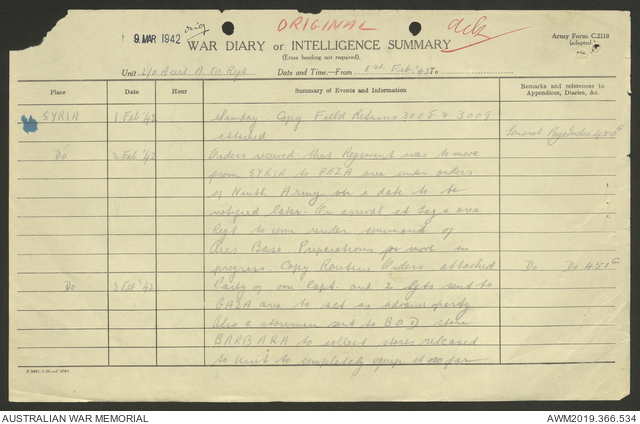 9 MAR 1942
orig
ORIGINAL
WAR DIARY or INTELLIGENCE SUMMARY
(Erase heading not required).
Army Form C.2118
(adapted)
Unit A Tk Regt
Date and Time.—From 1st Feb '42 To
Place Date Hour Summary of Events and Information Remarks and references to Appendices, Diaries, &c.
SYRIA 1 Feb '42 Sunday. Copy Field Returns 3008 & 3009
attached
Do 2 Feb '42 Orders received that Regiment was to move
from SYRIA to GAZA area under orders
of Ninth Army on a date to be
notified later. On arrival at Gaza area
Regt to come under command of
Base Preparations for move in
progress. Copy Routine Orders attached Do Do
Do 3 Feb '42 Party of one Capt. and 2 sent to
GAZA area to act as advance party
Also a storeman sent to B.O.D. store
BARBARA to collect stores released
to Unit to completely equip it so far
AUSTRALIAN WAR MEMORIAL
AWM2019.366.534